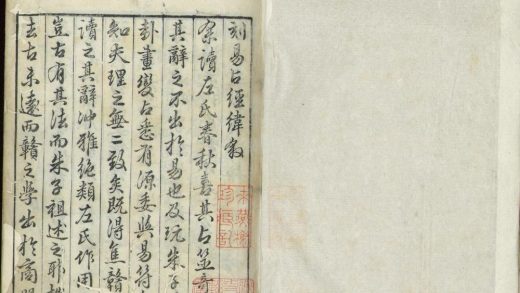 刻易占經緯敘
余讀左氏春秋喜其占筮奇
其辭之不出於易也及玩朱子
卦畫變占悉有源委與易符
知夫理之無二致矣既得焦贛
讀之其辭沖雅絕類左氏作用
豈古有其法而朱子祖述之耶
去古未遠而贛之學出於商